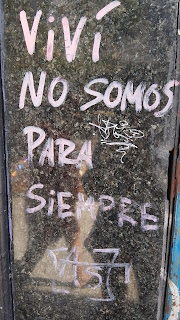 ViVÍ
NO SOMOS
PARA
SiEMPRE